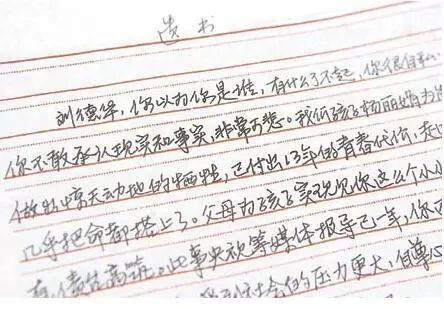 遗书
刘德华，你以为你是谁，有什么了不起，你很自私
你不敢承认现实和事实，非常可悲。我们孩子杨丽娟为
做出惊天动地的牺牲，已付出13年的青春代价，
几乎把命都搭上了。父母为孩子实现见你这么个小小
债台高筑。此事央视等媒体报导已一年，你
社会的压力更大，自尊心